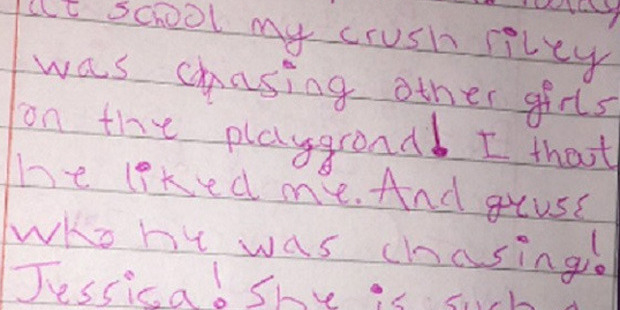 at school my crush riley
was chasing other girls
on the playgrond! I thout
he liked me. And geuss
who he was chasing!
Jessica! She is such